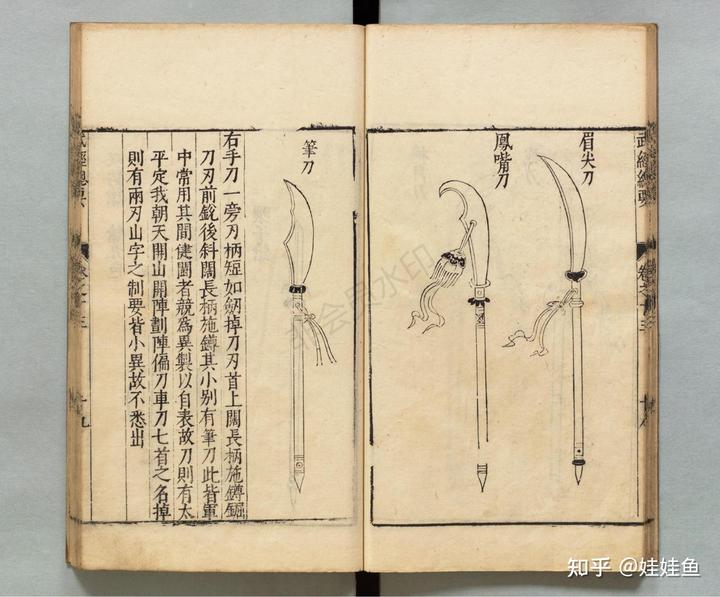 武經總要
眉尖刀
鳳嘴刀
筆刀
右手刀一旁刃柄短如劒掉刀刃首上闊長柄施鐏鋸
刀刃前銳後斜闊長柄施鐏其小别有筆刀此皆軍
中常用其間健鬬者競為異製以自表故刀則有太
平定我朝天開山開陣劃陣偏刀車刀匕首之名掉
則有兩刃山字之制要皆小異故不悉出
武經總要
十九
知乎 @娃娃鱼